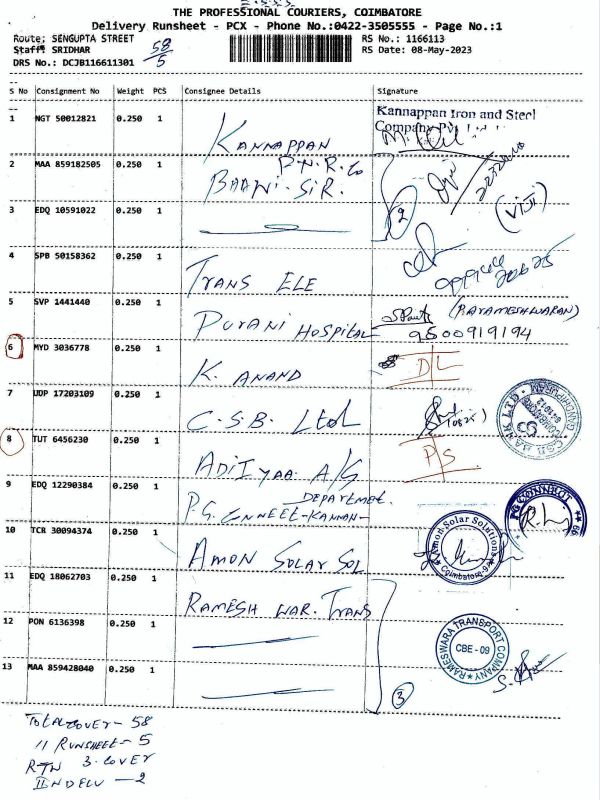 THE PROFESSIONAL COURIERS, COIMBATORE
Delivery Runsheet - PCX - Phone No.:0422-3505555 - Page No.:1
Route; SENGUPTA STREET
RS No.: 1166113
Staff: SRIDHAR
58/5
RS Date: 08-May-2023
DRS No.: DCJB116611301
S No Consignment No Weight PCS Consignee Details Signature
1 NGT 50012821 0.250 1 KANNAPPAN
Kannappan Iron and Steel
Company Pvt Ltd
2 MAA 859182505 0.250 1
P.N.R. Co
SIR.
(VIJI)
3 EDQ 10591022 0.250 1
2
4 SPB 50158362 0.250 1 TRANS ELE
5 SVP 1441440 0.250 1 PURANI HOSPITAL
(PARAMESHWARAN)
9500919194
6 MYD 3036778 0.250 1 K. ANAND D/L
7 UDP 17203109 0.250 1 C.S.B. Ltd
CSB BANK LTD
8 TUT 6456230 0.250 1 ADITYAA A/G P/S
DEPARTMET.
9 EDQ 12290384 0.250 1 P.G.
10 TCR 30094374 0.250 1 AMON SOLAR SOL
Amon Solar Solutions
Coimbatore-9
11 EDQ 18062703 0.250 1 RAMESH WAR. TRANS
12 PON 6136398 0.250 1
RAMESWARA TRANSPORT COMPANY
CBE - 09
13 MAA 859428040 0.250 1
3
TOTAL COVER - 58
11 RUNSHEET - 5
RTN 3. COVER
II N DELV - 2